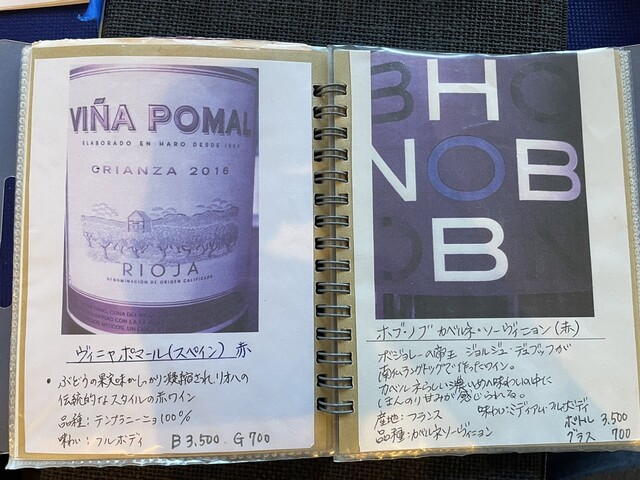 VIÑA POMAL
ELABORADO EN HARO DESDE
CRIANZA 2016
RIOJA
DENOMINACIÓN DE ORIGEN CALIFICADA
ヴィニャ・ポマール(スペイン) 赤
• ぶどうの果実味がしっかり凝縮され、リオハの
伝統的なスタイルの赤ワイン
品種：テンプラニーニョ100%
味わい：フルボディ B 3,500. G 700
B H O
N O B B
B
ホブ・ノブ カベルネ・ソーヴィニョン(赤)
ボジョレーの帝王 ジョルジュ・デュブッフが
南仏ラングドックで作ったワイン。
カベルネらしい濃いめの味わいの中に
ほんのり甘みが感じられる。
産地：フランス 味わい：ミディアム〜フルボディ
品種：カベルネソーヴィニョン ボトル 3,500
グラス 700